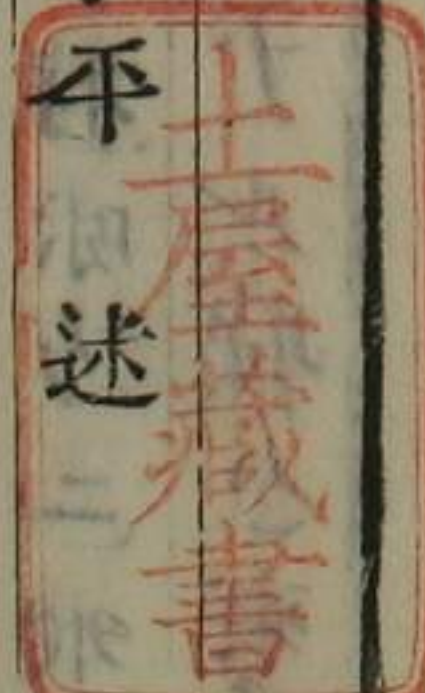 土屋藏書
平述